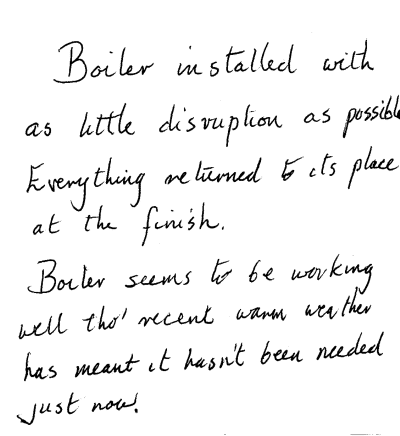 Boiler installed with
as little disruption as possible
Everything returned to its place
at the finish.
Boiler seems to be working
well tho' recent warm weather
has meant it hasn't been needed
just now.